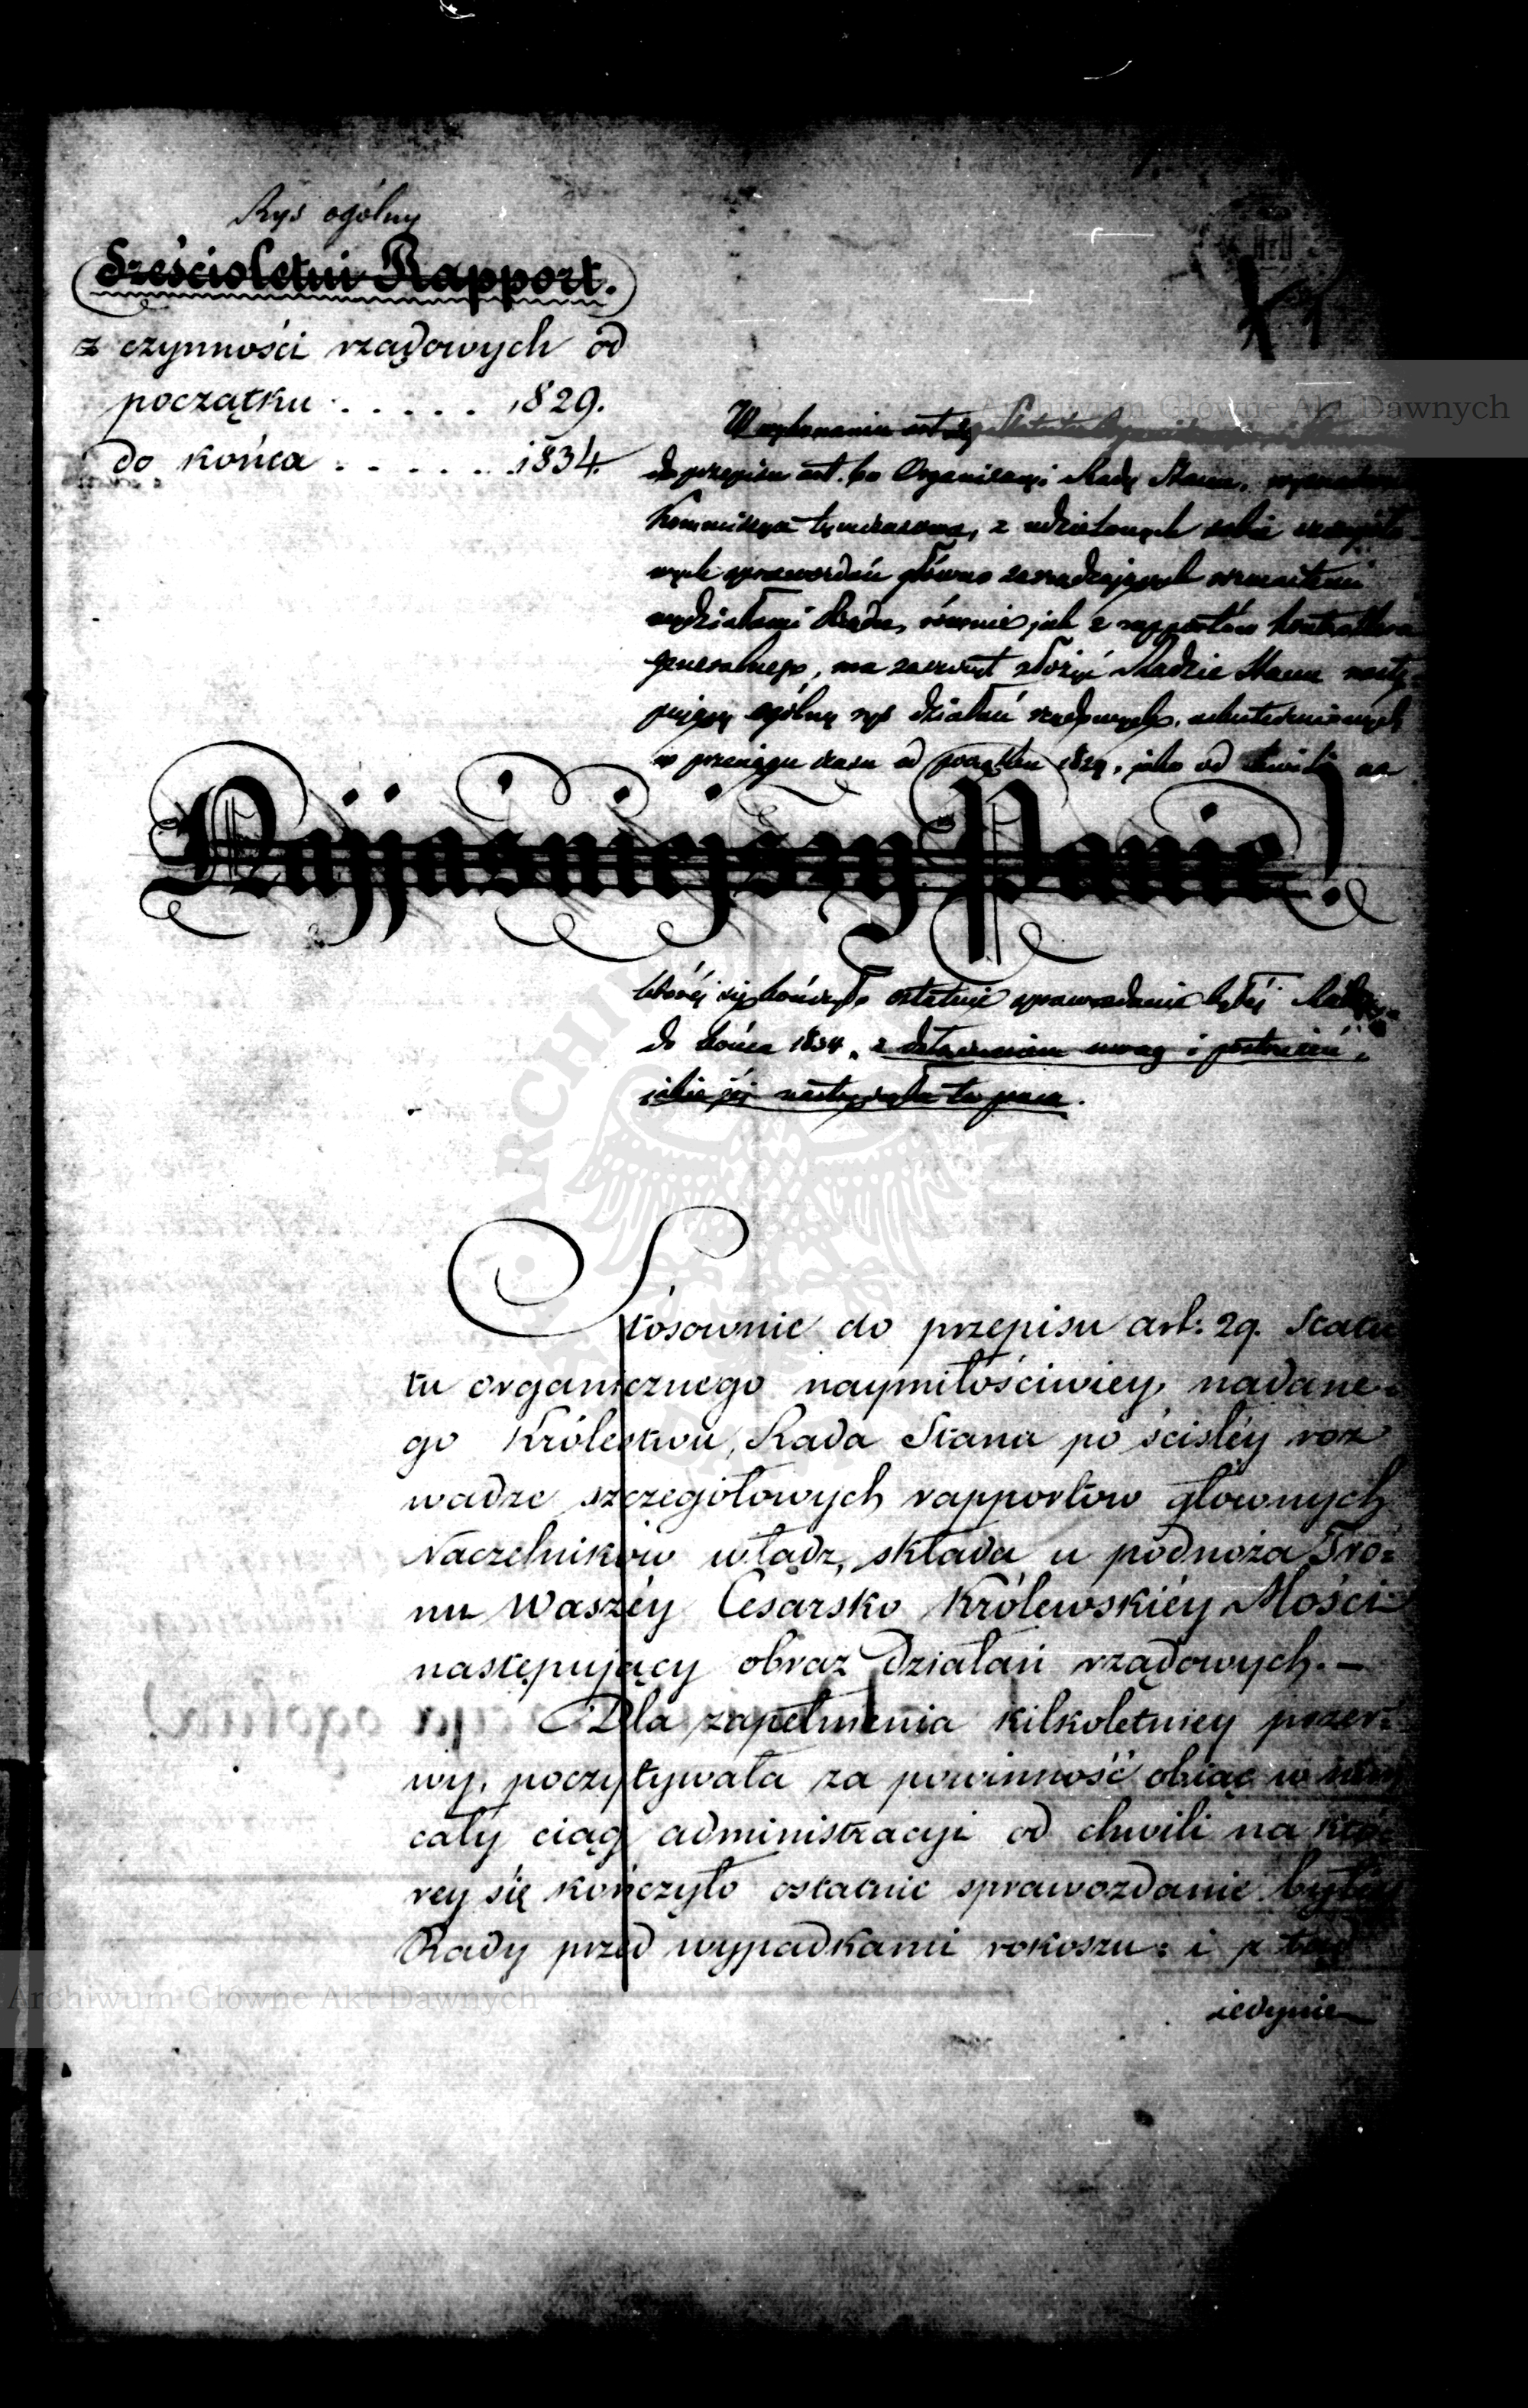 Rys ogólny
Sześcioletni Rapport.
z czynności rządowych od
początku . . . . . 1829.
do końca . . . . . 1834.
W wykonaniu art.
do przepisu art. Organizacyi Rady Stanu,
Kommissya tymczasowa, z udzielonych sobie
wych sprawozdań główno zarządzających rozmaitemi
wydziałami Rządu, równie jak z rapportów kontrollera
generalnego, ma zaszczyt złożyć Radzie Stanu nastę-
pujący ogólny rys działań rządowych, uskutecznionych
w przeciągu czasu od początku 1829, jako od chwili na
Najjaśniejszy Panie!
któréj się kończyło ostatnie sprawozdanie byłéj Rady
do końca 1834, z dołączeniem uwag i postrzeżeń,
jakie jéj nastręczyła ta praca.
Stósownie do przepisu art: 29. Statu
tu organicznego naymiłościwiey nadane-
go Królestwu, Rada Stanu po ścisłéy roz
wadze szczegółowych rapportów głównych
Naczelników władz, składa u podnóża Tro=
nu Waszéy Cesarsko Królewskiéy Mości
następujący obraz działań rządowych.—
Dla zapełnienia kilkoletniey przer=
wy, poczytywała za powinność obiąć w nim
cały ciąg administracyi od chwili na któ
rey się kończyło ostatnie sprawozdanie byłéy
Rady przed wypadkami rokoszu: i z tąd
iedynie
Archiwum Główne Akt Dawnych
Archiwum Główne Akt Dawnych